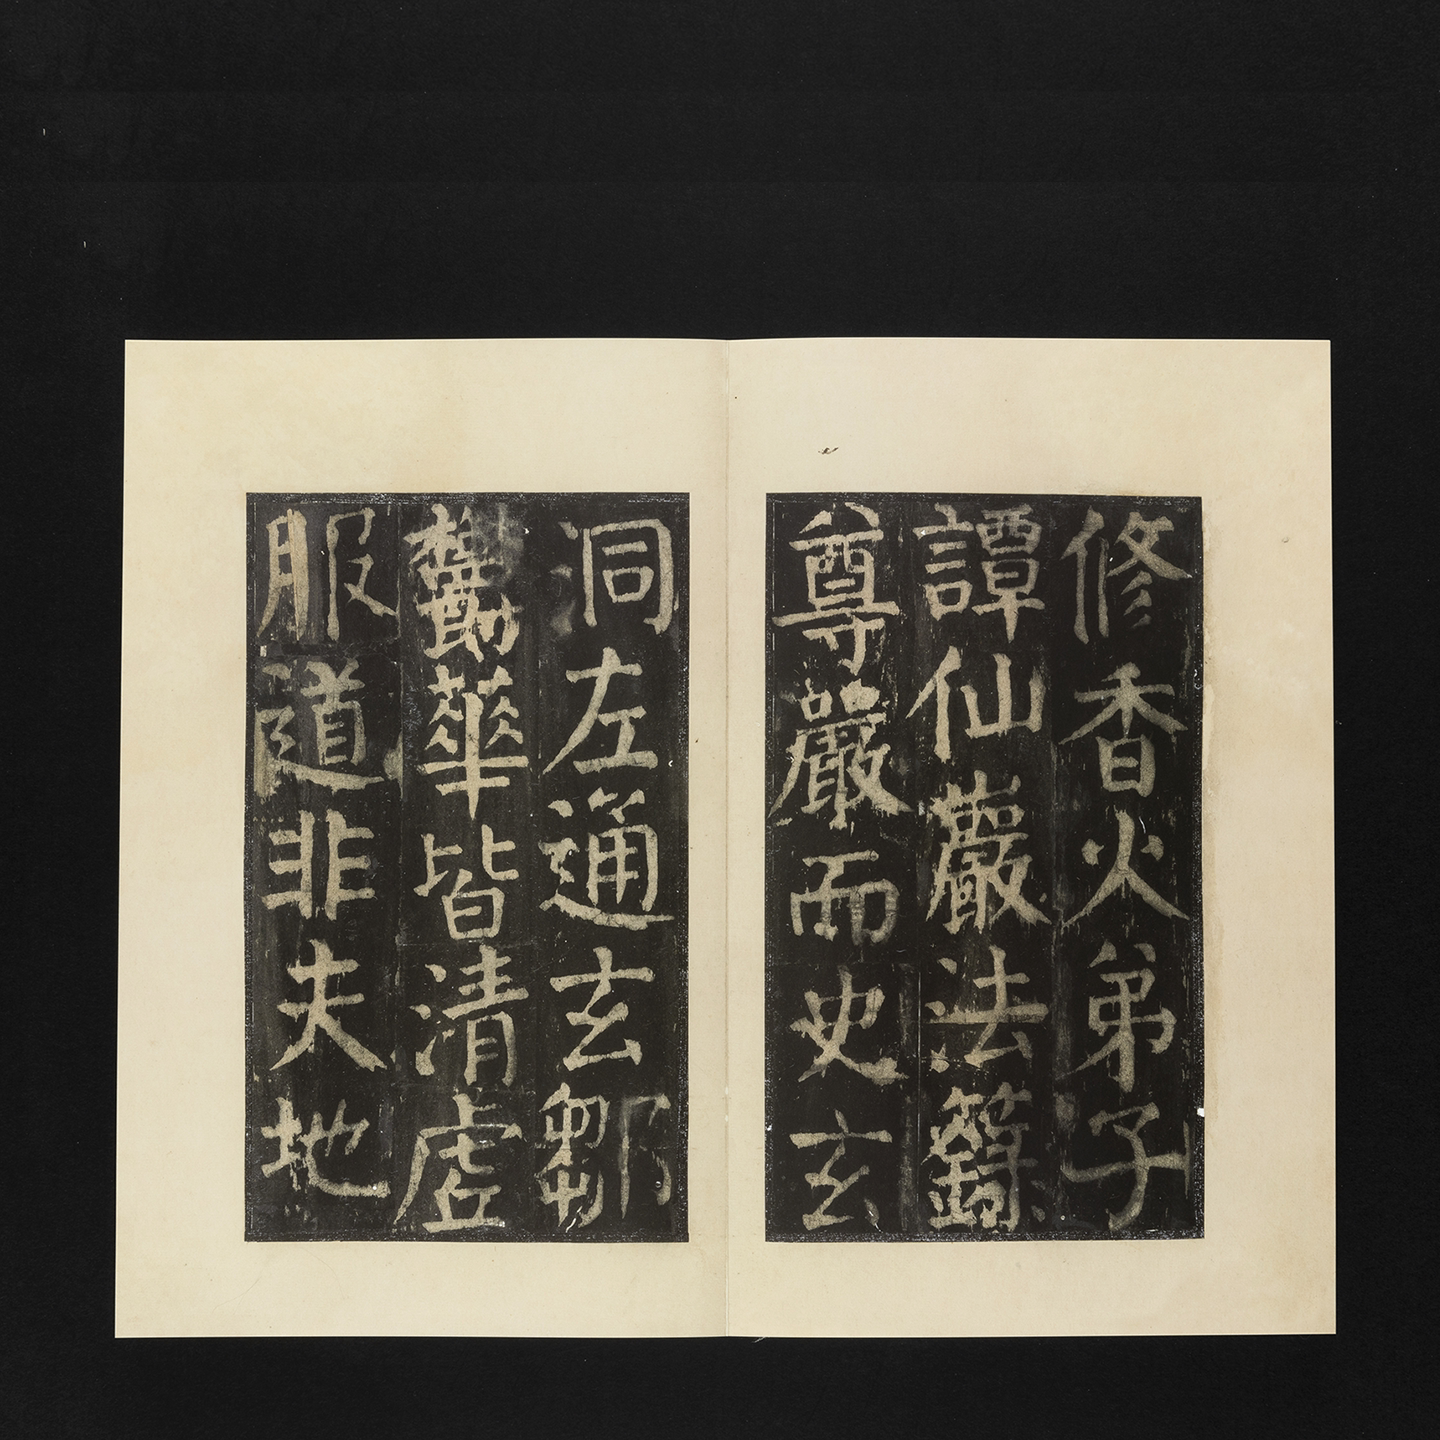 修香火弟子
譚仙巖法籙
尊嚴而史玄
洞左通玄鄒
鬱華皆清虛
服道非夫地